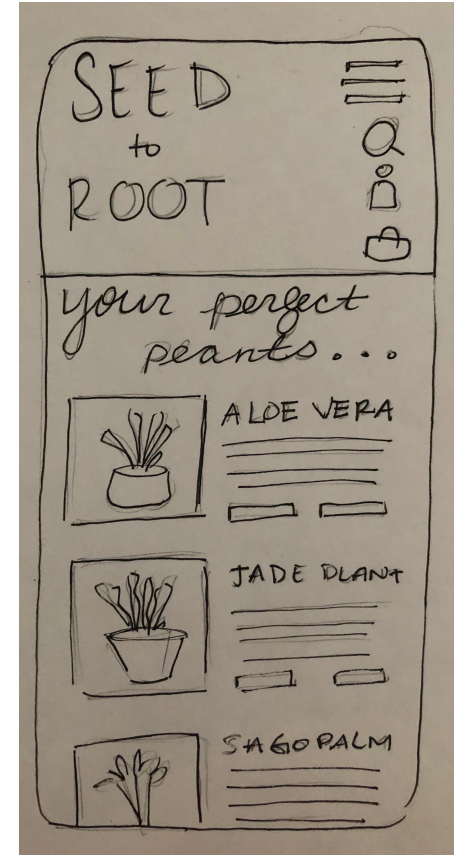 SEED
to
ROOT
your perfect
plants...
ALOE VERA
JADE PLANT
SAGO PALM